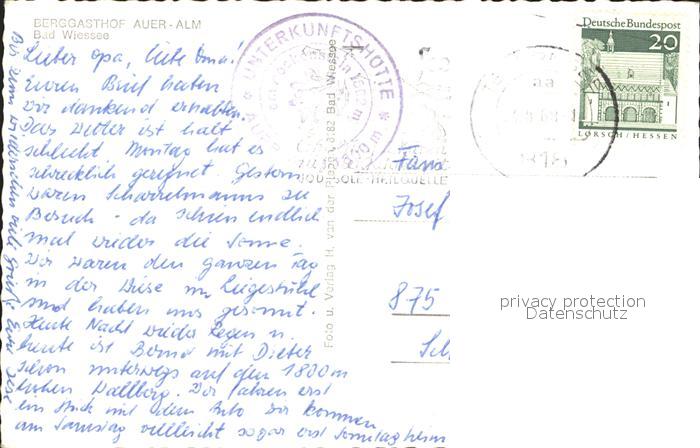 BERGGASTHOF AUER-ALM
Bad Wiessee
Lieber Opa, liebe Oma!
Euren Brief haben
wir dankend erhalten.
Das Wetter ist halt
schlecht Montag hat es
schrecklich geregnet. Gestern
waren zu
Besuch - da schien endlich
mal wieder die Sonne.
Wir waren den ganzen Tag
in der Wiese im Liegestuhl
und haben uns gesonnt.
Heute Nacht wieder Regen u.
heute ist Bernd mit Dieter
schon unterwegs auf den 1800 m
hohen Wallberg. Wir fahren erst
ein Stück mit dem Auto Wir kommen
am Samstag vielleicht sogar erst Sonntag heim
viele Grüße Eure
UNTERKUNFTSHÜTTE
Foto u. Verlag H. van der Piepen, 8182 Bad Wiessee
JOD-SOLE-HEILQUELLE
Deutsche Bundespost
20
LORSCH/HESSEN
Fam
Josef
875
privacy protection
Datenschutz